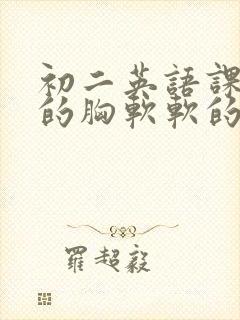 初二英語課
的胸軟軟的
羅超毅